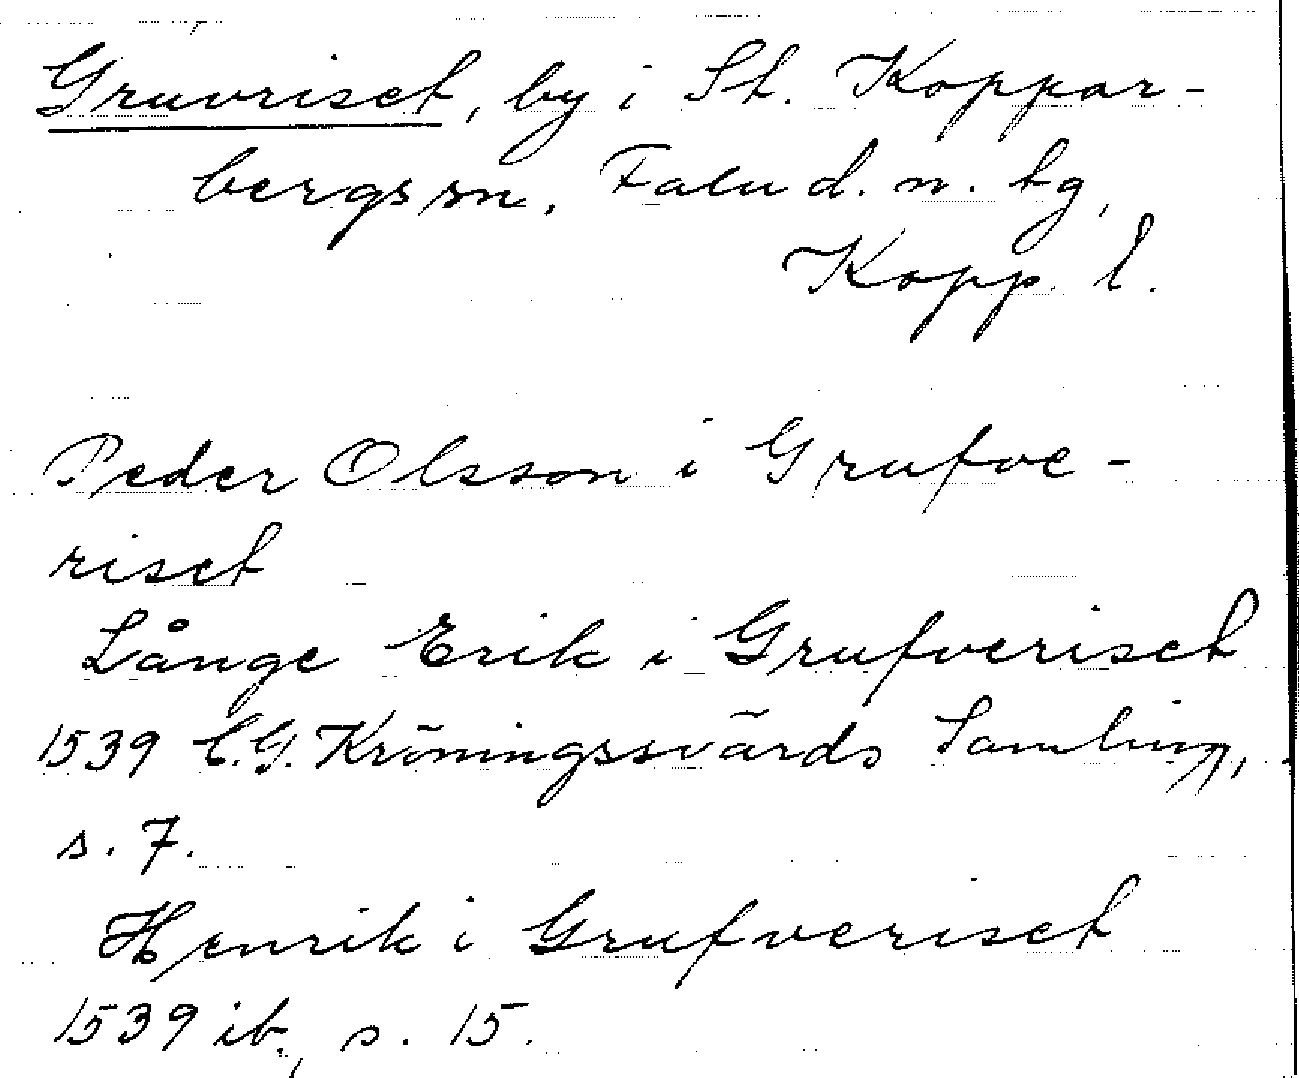 Gruvriset, by i St. Koppar-
bergs sn, Falu d. n. tg,
Kopp. l.
Peder Olsson i Grufve-
riset
Långe Erik i Grufveriset
1539 C.G. Kröningssvärds Samling,
s. 7.
Henrik i Grufveriset
1539 ib., s. 15.